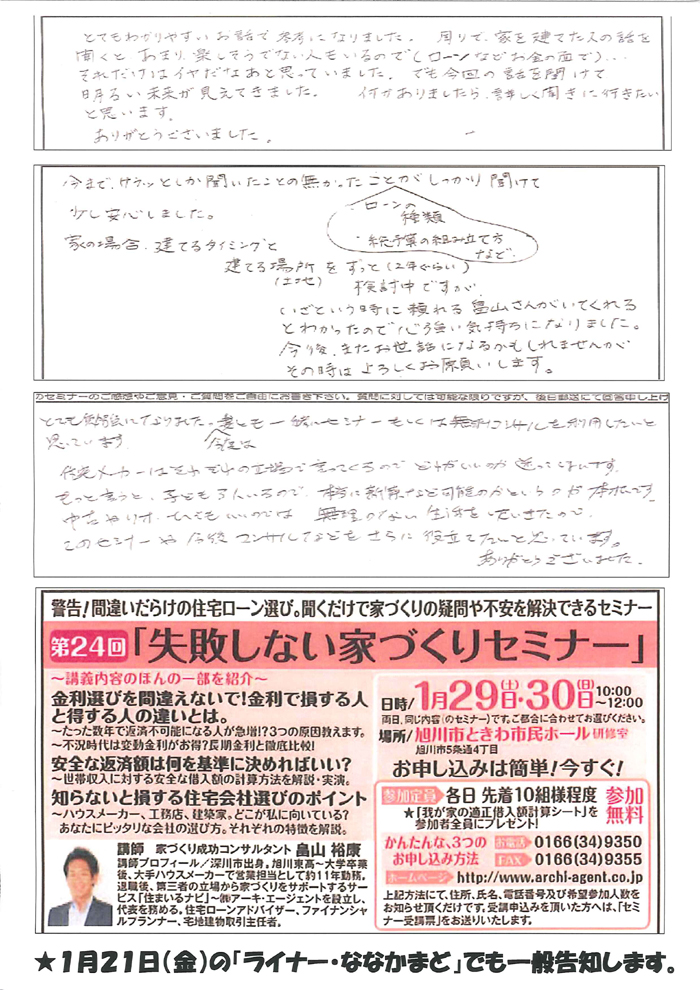 とてもわかりやすいお話で参考になりました。 周りで、家を建てた人の話を
聞くと あまり楽しそうでない人もいるので(ローンなどお金の面で)…
それだけはイヤだなあと思っていました。でも今回の話を聞けて
明るい未来が見えてきました。 何かありましたら、詳しく聞きに行きたい
と思います。
ありがとうございました。
今まで、サラッとしか聞いたことの無かったことがしっかり聞けて
少し安心しました。
・ローンの
種類
・総予算の組み立て方
など
家の場合、建てるタイミングと
建てる場所をずっと(2年ぐらい)
(土地)
検討中ですが
いざという時に頼れる畠山さんがいてくれる
とわかったので心強い気持ちになりました。
今後、またお世話になるかもしれませんが
その時はよろしくお願いします。
のセミナーのご感想やご意見・ご質問をご自由にお書き下さい。質問に対しては可能な限りですが、後日郵送にて回答申し上げ
とても勉強になりました。妻とも一緒にセミナーもしくは無料コンサルを利用したいと
思っています
今度は
住宅メーカーはそれぞれの立場で言ってくるので どれがいいのか迷ってしまいます。
もっと言うと、子ども3人いるので、本当に新築など可能なのかというのが本松です
無理のない生活をしたいので
このセミナーや今後コンサルなどをさらに役立てたいと思っています。
ありがとうございました。
警告!間違いだらけの住宅ローン選び。聞くだけで家づくりの疑問や不安を解決できるセミナー
第24回「失敗しない家づくりセミナー」
～講義内容のほんの一部を紹介～
金利選びを間違えないで!金利で損する人
と得する人の違いとは。
～たった数年で返済不可能になる人が急増!?3つの原因教えます。
～不況時代は変動金利がお得?長期金利と徹底比較!
安全な返済額は何を基準に決めればいい?
～世帯収入に対する安全な借入額の計算方法を解説・実演。
知らないと損する住宅会社選びのポイント
～ハウスメーカー、工務店、建築家。どこが私に向いている?
あなたにピッタリな会社の選び方。それぞれの特徴を解説。
講師 家づくり成功コンサルタント 畠山 裕康
講師プロフィール/深川市出身。旭川東高～大学卒業
後、大手ハウスメーカーで営業担当として約11年勤務。
退職後、第三者の立場から家づくりをサポートするサー
ビス「住まいるナビ」～㈱アーキ・エージェントを設立し、
代表を務める。住宅ローンアドバイザー、ファイナンシャ
ルプランナー、宅地建物取引主任者。
日時/1月29日(土)・30日(日)10:00～12:00
両日、同じ内容(のセミナー)です。ご都合に合わせてお選びください。
場所/旭川市ときわ市民ホール 研修室
旭川市5条通4丁目
お申し込みは簡単!今すぐ!
参加定員 各日 先着10組様程度
★「我が家の適正借入額計算シート」を
参加者全員にプレゼント!
参加無料
かんたんな、3つの
お申し込み方法
お電話 0166(34)9350
FAX 0166(34)9355
ホームページ http://www.archi-agent.co.jp
上記方法にて、住所、氏名、電話番号及び希望参加人数を
お知らせ頂くだけです。受講申込みを頂いた方へは、「セミ
ナー受講票」をお送りいたします。
★1月21日(金)の「ライナー・ななかまど」でも一般告知します。